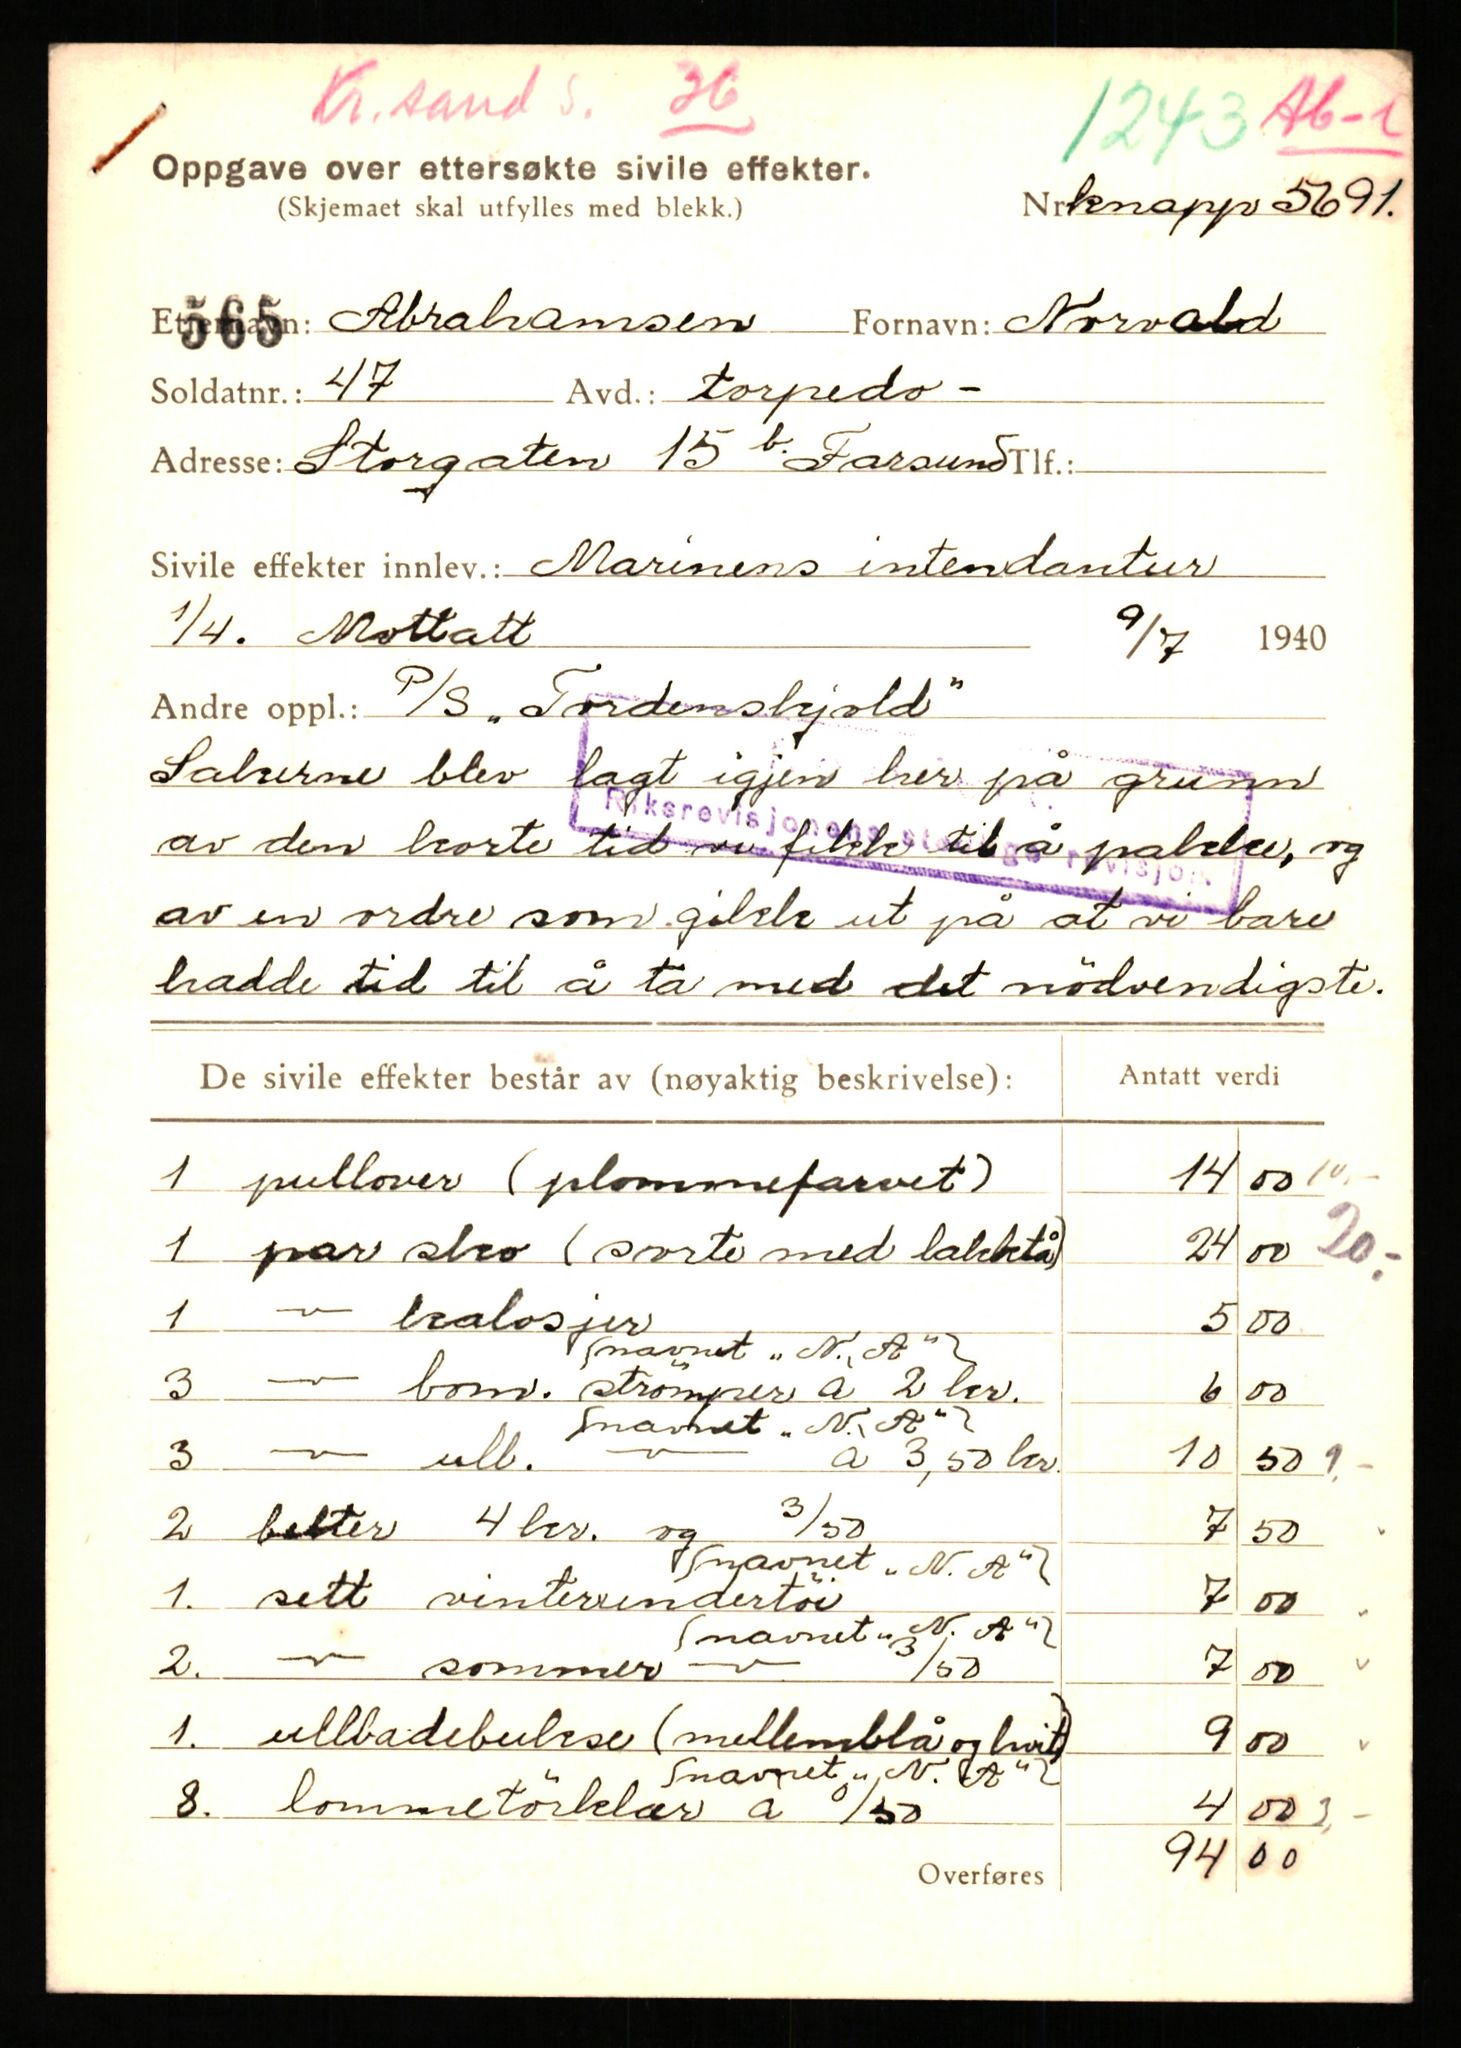 Kr.sand S. 36
1243 Ab-1
Oppgave over ettersøkte sivile effekter.
(Skjemaet skal utfylles med blekk.)
Nr. knapp 5691.
565
Etternavn: Abrahamsen Fornavn: Norvald
Soldatnr.: 47 Avd.: torpedo -
Adresse: Storgaten 15 b. Farsund Tlf.:
Sivile effekter innlev.: Marinens intendantur
1/4. Mottatt 9/7 1940
Andre oppl.: P/S „Tordenskjold"
Riksrevisjonens stedlige revisjon.
Sakerne blev lagt igjen her på grunn
av den korte tid vi fikk til å pakke, og
av en ordre som gikk ut på at vi bare
hadde tid til å ta med det nödvendigste.
De sivile effekter består av (nøyaktig beskrivelse): Antatt verdi
1 pullover (plommefarvet) 14 00 10,-
1 par sko (sorte med lakktå) 24 00 20.-
1 —"— kalosjer 5 00
(navnet „N. A")
3 —"— bom. strömper à 2 kr. 6 00
(navnet „N. A")
3 —"— ull. —"— à 3,50 kr. 10 50 9,-
2 belter 4 kr. og 3/50 7 50
(navnet „N. A")
1. sett vinterundertöi 7 00
(navnet „N. A")
2. —"— sommer —"— 3/50 7 00
1. ullbadebukse (mellemblå og hvit) 9 00
(navnet „N. A")
8. lommetörklær à 0/50 4 00 3,-
Overføres 94 00